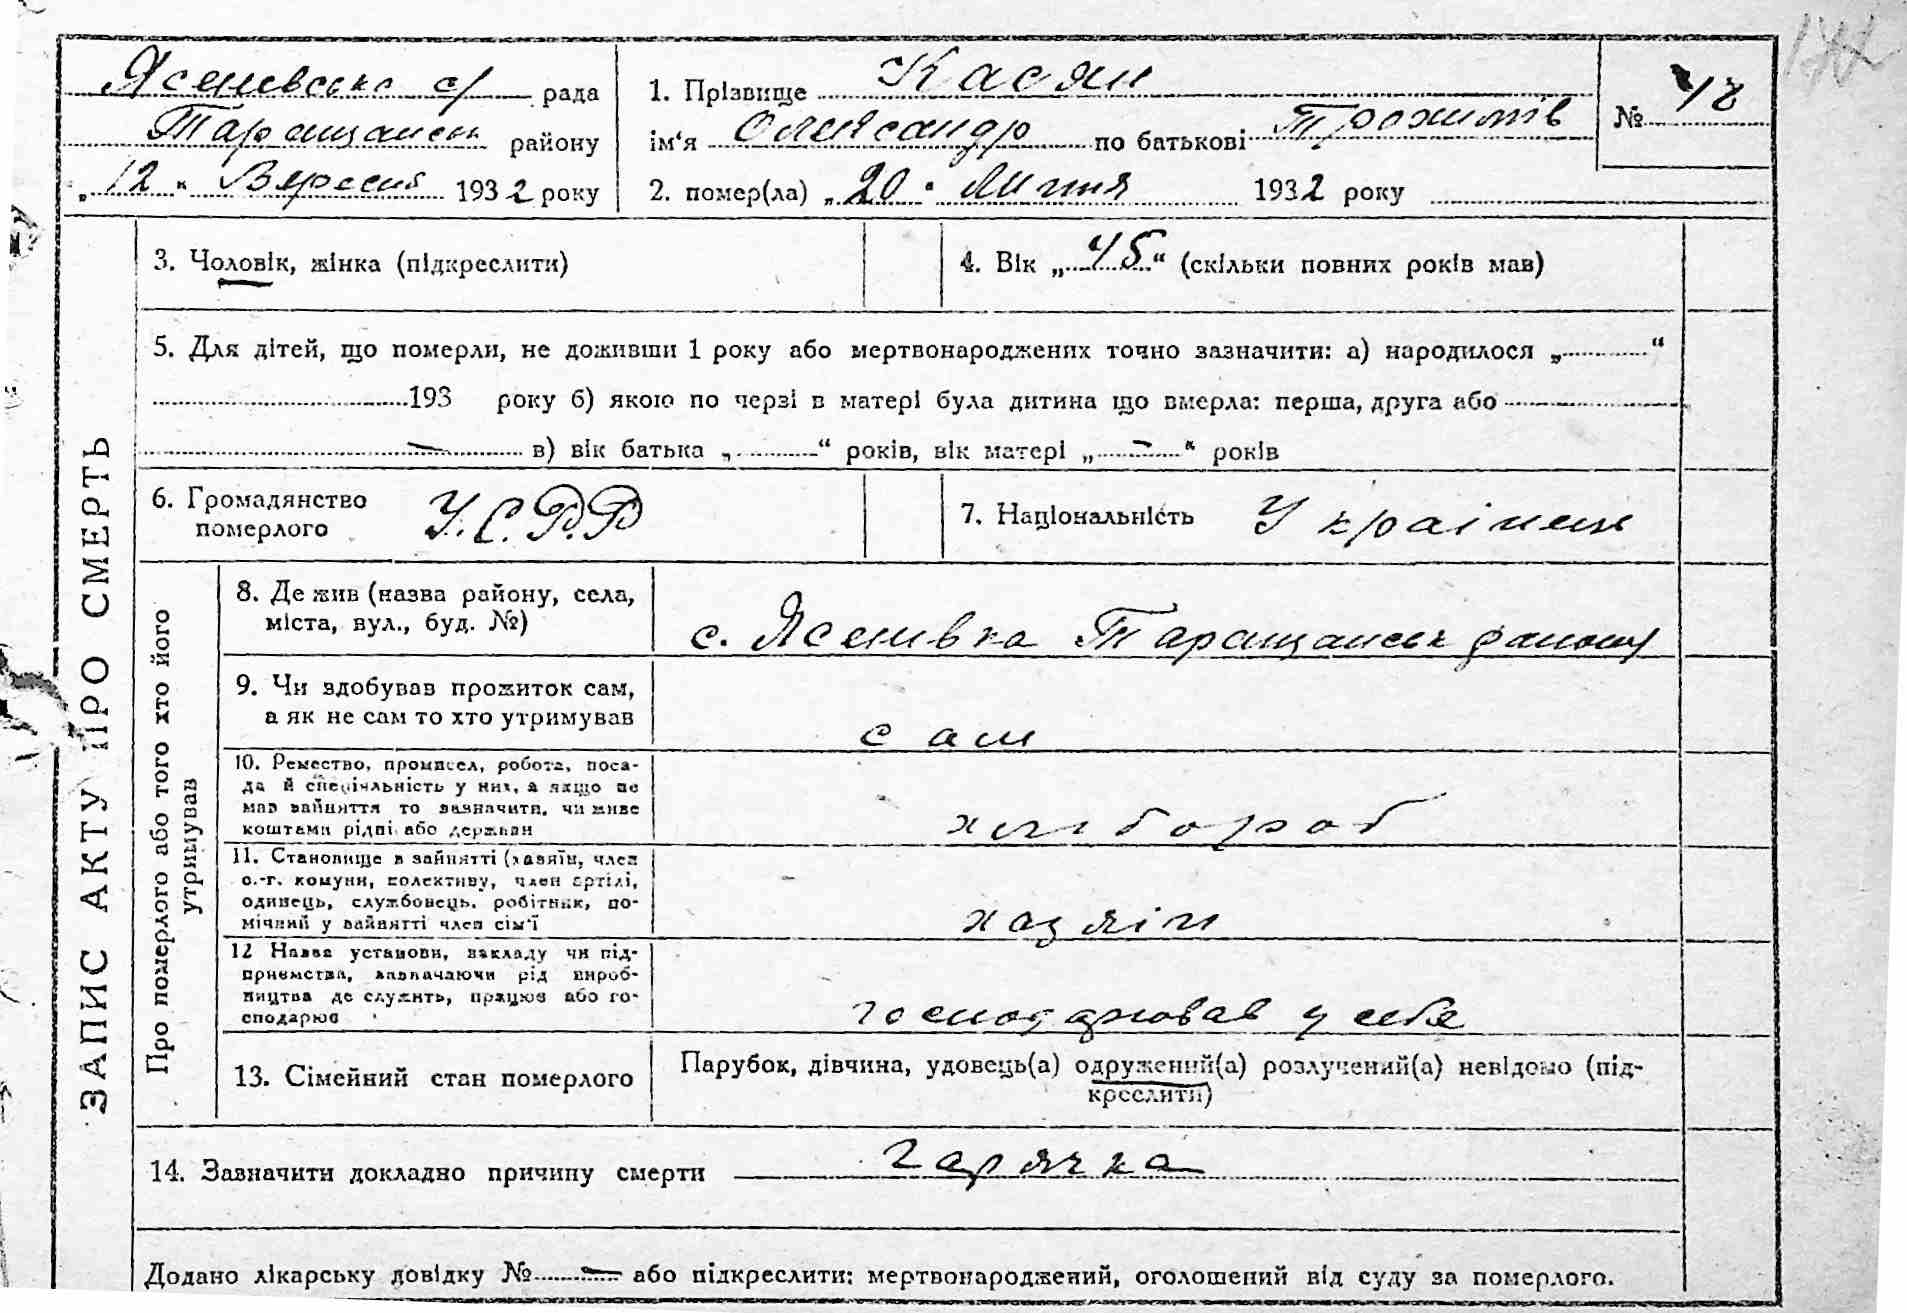 Ясенівська с/ рада
Таращанськ району
„12" Вересня 1932 року
1. Прізвище Касян
ім'я Олександр по батькові Трохимів
2. помер(ла) „20" Липня 1932 року
№ 48
3. Чоловік, жінка (підкреслити)
4. Вік „45" (скільки повних років мав)
5. Для дітей, що померли, не доживши 1 року або мертвонароджених точно зазначити: а) народилося „ "
193 року б) якою по черзі в матері була дитина що вмерла: перша, друга або
— в) вік батька „ " років, вік матері „ — " років
6. Громадянство
померлого
У.С.Р.Р
7. Національність Українець
ЗАПИС АКТУ ПРО СМЕРТЬ
Про померлого або того хто його
утримував
8. Де жив (назва району, села,
міста, вул., буд. №)
с. Ясенівка Таращанськ району
9. Чи здобував прожиток сам,
а як не сам то хто утримував
сам
10. Ремество, промисел, робота, поса-
да й спеціяльність у них, а якщо не
мав зайняття то зазначити, чи живе
коштами рідні або держави
хлібороб
11. Становище в зайнятті (хазяїн, член
с.-г. комуни, колективу, член артілі,
одинець, службовець, робітник, по-
мічний у зайнятті член сім'ї
хазяін
12 Назва установи, закладу чи під-
приємства, зазначаючи рід вироб-
ництва де служить, працює або го-
сподарює
господарював у себе
13. Сімейний стан померлого
Парубок, дівчина, удовець(а) одружений(а) розлучений(а) невідомо (під-
креслити)
14. Зазначити докладно причину смерти гарячка
Додано лікарську довідку № — або підкреслити: мертвонароджений, оголошений від суду за померлого.